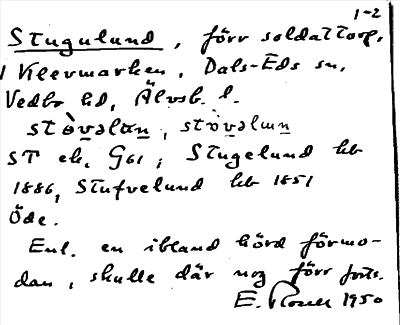 1-2
Stugulund, förr soldattorp,
i Klevmarken, Dals-Eds sn,
Vedbo hd, Älvsb. l.
stòvəlun, stòvəlun
ST ek. G61; Stugelund hb
1886, Stufvelund hb 1851
Öde.
Enl. en ibland hörd förmo-
dan, skulle där nog förr forts.
E. 1950